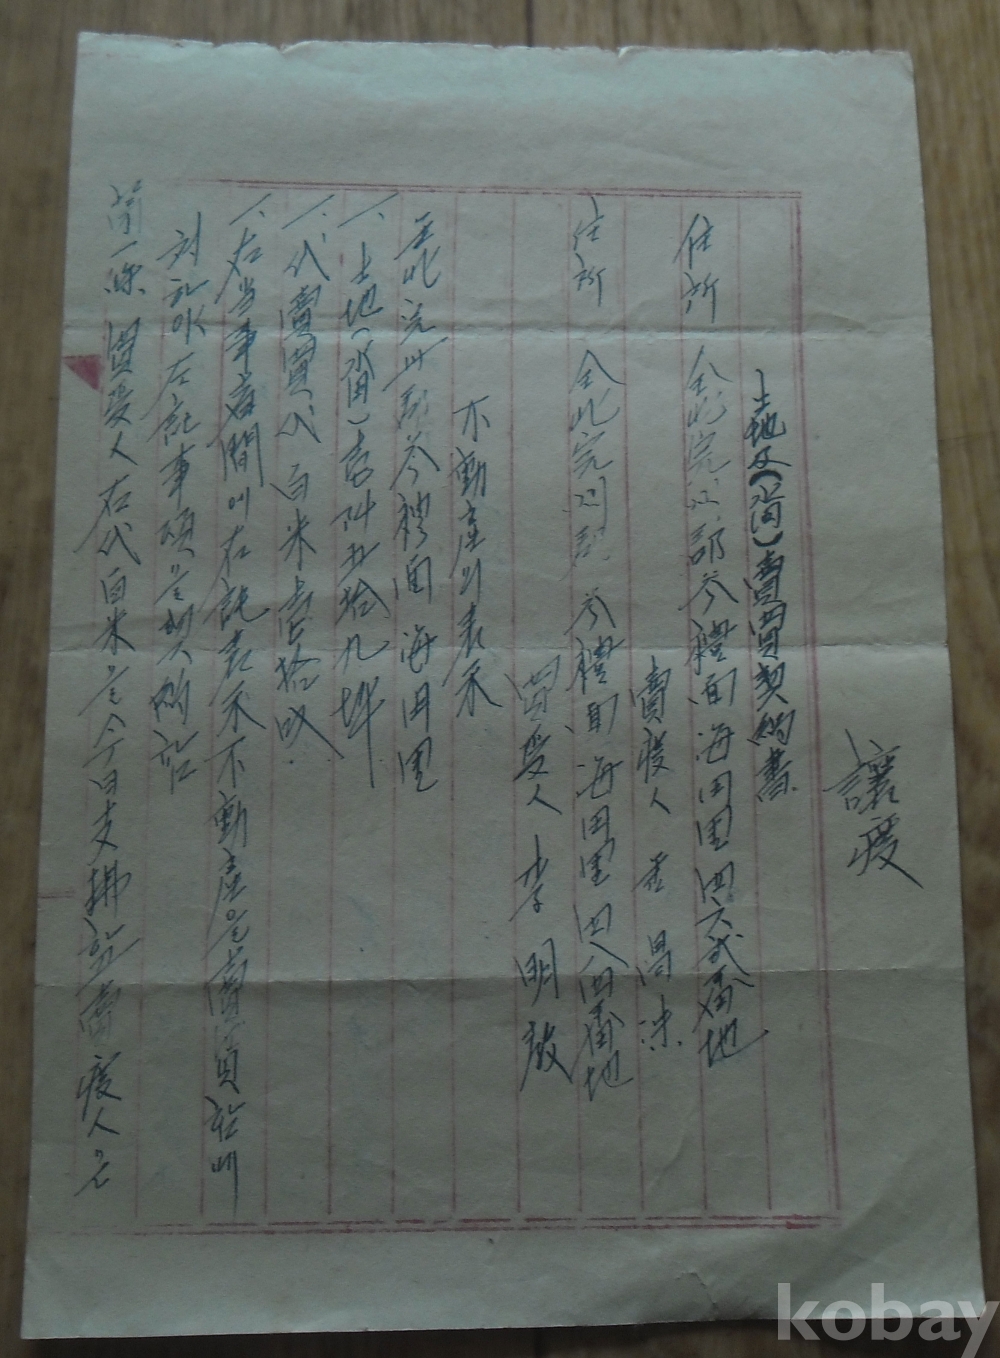 讓渡
土地及(畓)賣買契約書
住所 全北完州郡參禮面海田里四六貳番地
賣渡人 昌洙
住所 全北完州郡參禮面海田里四八四番地
買受人 李明
不動産의表示
全北完州郡參禮面海田里
一、土地(畓) 五拾九坪
一、代賣買代 白米 拾叺
一、右当事者間에右記表示不動産을賣買함에
対하야左記事項을契約함
第一條 買受人右代白米을今日支拂하고賣渡人은
kobay